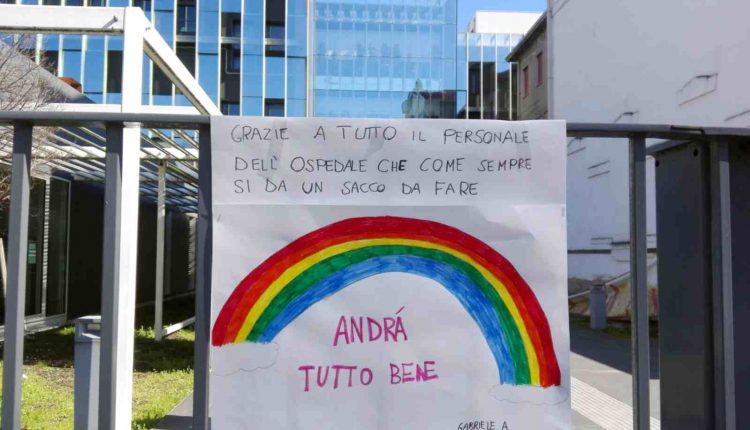 GRAZIE A TUTTO IL PERSONALE
DELL'OSPEDALE CHE COME SEMPRE
SI DA UN SACCO DA FARE
ANDRÁ
TUTTO BENE
GABRIELE A